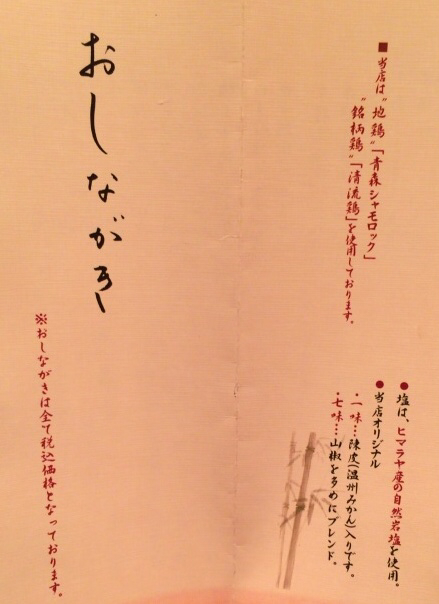 ■当店は"地鶏"「青森シャモロック」
"銘柄鶏"「清流鶏」を使用しております。
●塩は、ヒマラヤ産の自然岩塩を使用。
●当店オリジナル
・一味…陳皮(温州みかん)入りです。
・七味…山椒を多めにブレンド。
おしながき
※おしながきは全て税込価格となっております。